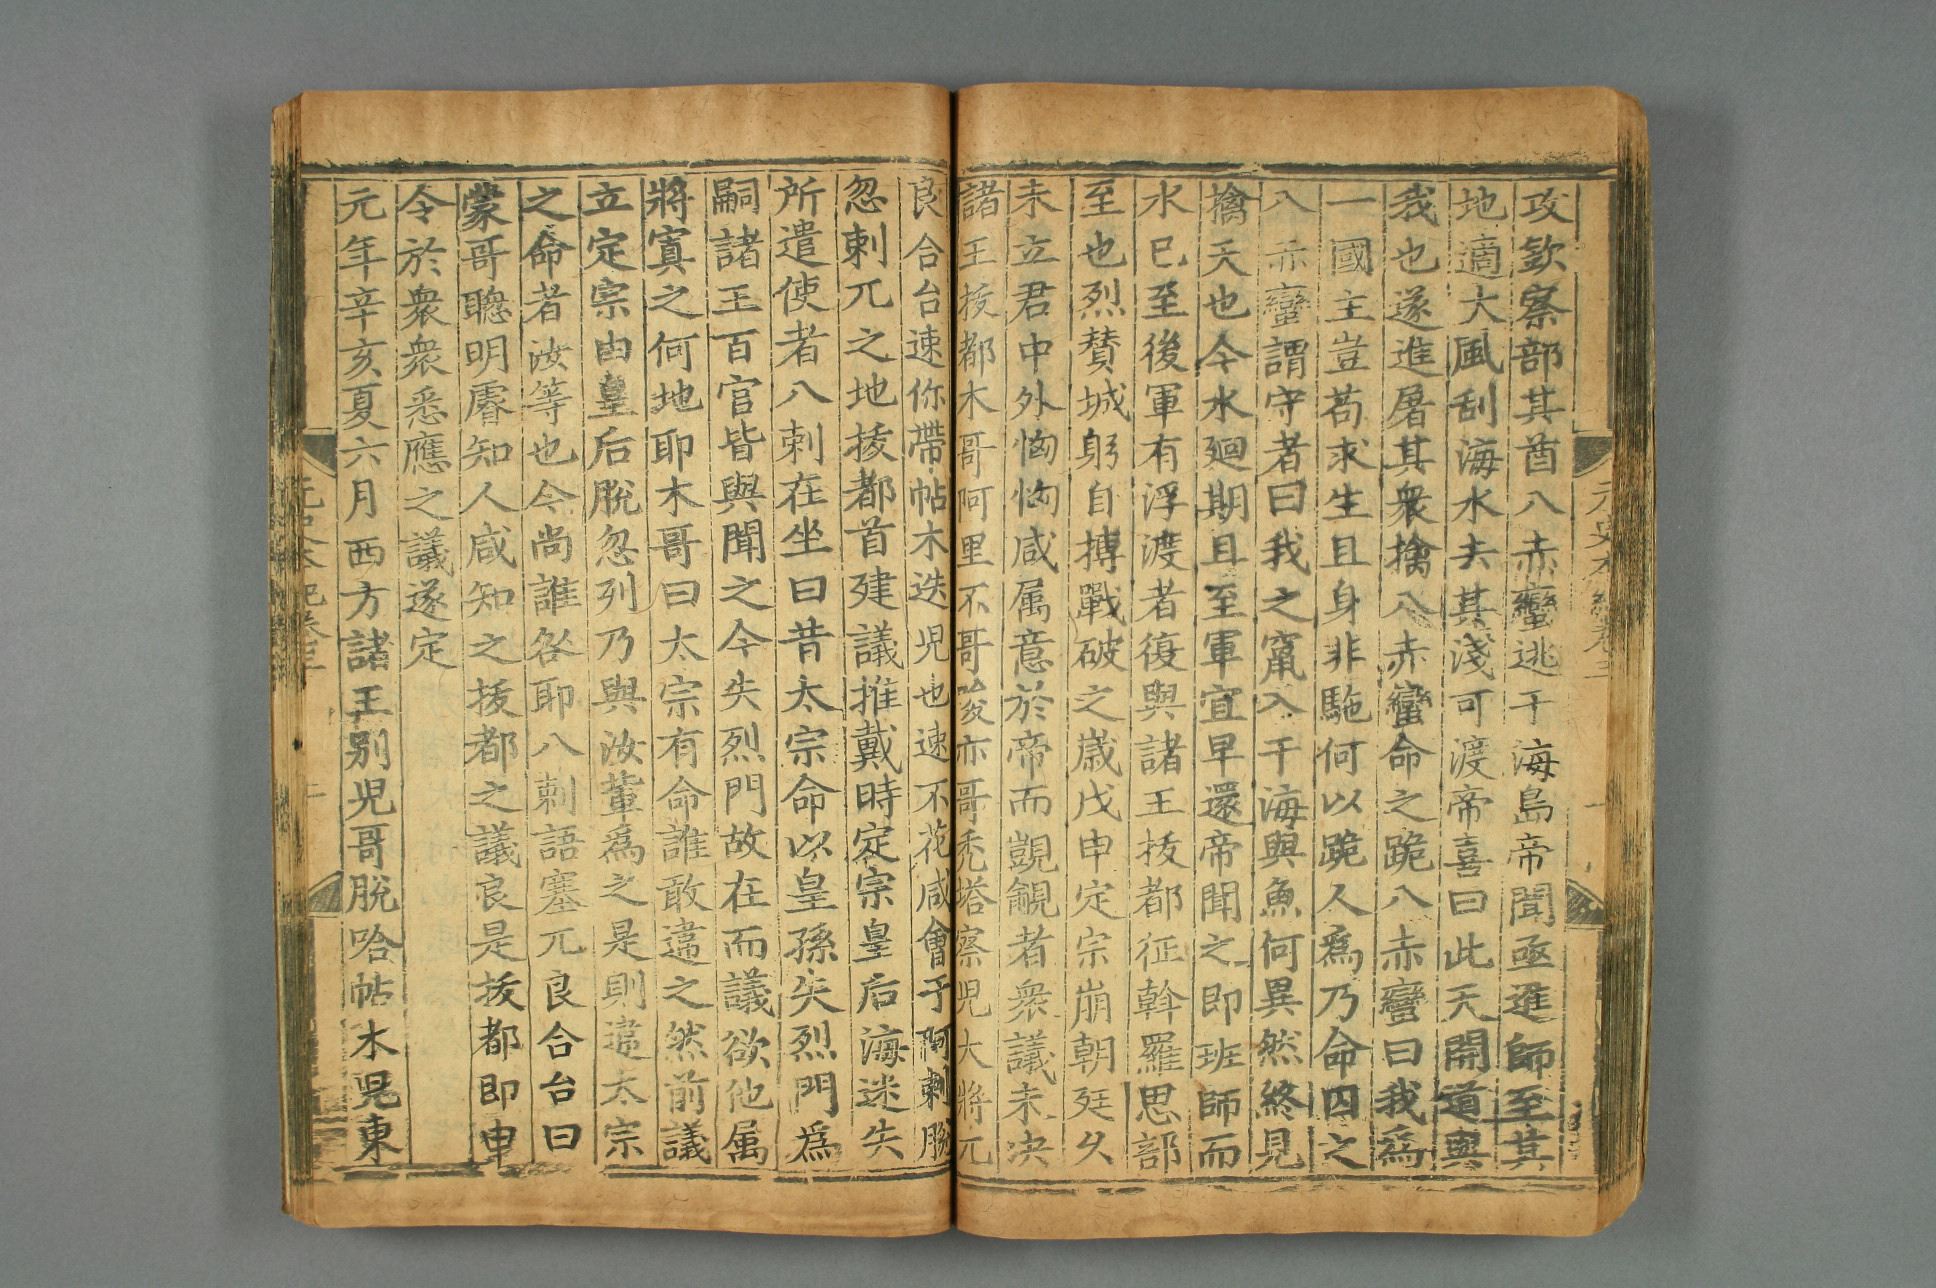 攻欽察部其酋八赤蠻逃于海島帝聞亟進師至其
地適大風刮海水去其淺可渡帝喜曰此天開道與
我也遂進屠其衆擒八赤蠻命之跪八赤蠻曰我爲
一國主豈苟求生且身非駞何以跪人爲乃命囚之
八赤蠻謂守者曰我之竄入于海與魚何異然終見
擒天也今水廻期且至軍宜早還帝聞之即班師而
水已至後軍有浮渡者復與諸王拔都征斡羅思部
至也烈賛城躬自搏戰破之歲戊申定宗崩朝廷久
未立君中外恟恟咸属意於帝而覬覦者衆議未决
諸王拔都木哥阿里不哥唆亦哥禿塔察兒大將兀
良合台速你帶帖木迭兒也速不花咸會于阿剌脫
忽剌兀之地拔都首建議推戴時定宗皇后海迷失
所遣使者八剌在坐曰昔太宗命以皇孫失烈門爲
嗣諸王百官皆與聞之今失烈門故在而議欲他属
將寘之何地耶木哥曰太宗有命誰敢違之然前議
立定宗由皇后脫忽列乃與汝輩爲之是則違太宗
之命者汝等也今尚誰咎耶八剌語塞兀良合台曰
蒙哥聰明睿知人咸知之拔都之議良是拔都即申
令於衆衆悉應之議遂定
元年辛亥夏六月西方諸王别兒哥脫哈帖木兒東